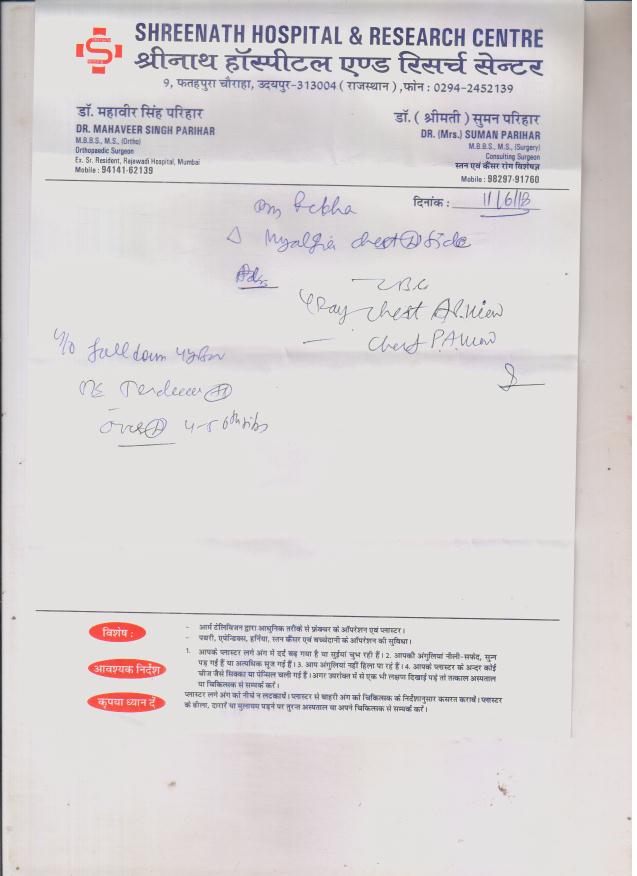 SHREENATH HOSPITAL & RESEARCH CENTRE
श्रीनाथ हॉस्पीटल एण्ड रिसर्च सेन्टर
9, फतहपुरा चौराहा, उदयपुर-313004 ( राजस्थान ) ,फोन : 0294-2452139
डॉ. महावीर सिंह परिहार
DR. MAHAVEER SINGH PARIHAR
M.B.B.S., M.S., (Ortho)
Orthopaedic Surgeon
Ex. Sr. Resident, Rajawadi Hospital, Mumbai
Mobile : 94141-62139
डॉ. ( श्रीमती ) सुमन परिहार
DR. (Mrs.) SUMAN PARIHAR
M.B.B.S., M.S., (Surgery)
Consulting Surgeon
स्तन एवं कैंसर रोग विशेषज्ञ
Mobile : 98297-91760
दिनांक : 11/6/18
Myalgia chest side
Adv
CBC
X Ray chest AP. view
chest P.A. view
fall down
over 4-5 6th ribs
विशेष :
- आर्म टेलिविजन द्वारा आधुनिक तरीके से फ्रेक्चर के ऑपरेशन एवं प्लास्टर।
- पथरी, एपेन्डिक्स, हर्निया, स्तन कैंसर एवं बच्चेदानी के ऑपरेशन की सुविधा।
आवश्यक निर्देश
1. आपके प्लास्टर लगे अंग में दर्द बढ़ गया है या सुईयां चुभ रही हैं। 2. आपकी अंगुलियां नीली-सफेद, सुन्न
पड़ गई हैं या अत्यधिक सूज गई हैं। 3. आप अंगुलियां नहीं हिला पा रहे हैं। 4. आपके प्लास्टर के अन्दर कोई
चीज जैसे सिक्का या पेन्सिल चली गई है। अगर उपरोक्त में से एक भी लक्षण दिखाई पड़े तो तत्काल अस्पताल
या चिकित्सक से सम्पर्क करें।
कृपया ध्यान दें
प्लास्टर लगे अंग को नीचे न लटकायें। प्लास्टर से बाहरी अंग को चिकित्सक के निर्देशानुसार कसरत करावें। प्लास्टर
के ढीला, दारारें या मुलायम पड़ने पर तुरन्त अस्पताल या अपने चिकित्सक से सम्पर्क करें।